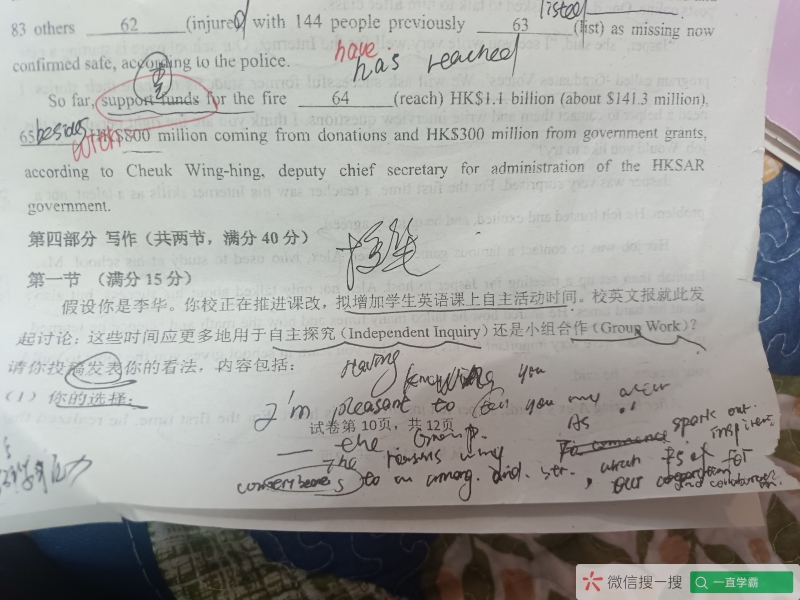 listed
83 others 62 (injured) with 144 people previously 63 (list) as missing now
have
confirmed safe, according to the police.
has reached
So far, support funds for the fire 64 (reach) HK$1.1 billion (about $141.3 million),
65 besides HK$800 million coming from donations and HK$300 million from government grants,
with
according to Cheuk Wing-hing, deputy chief secretary for administration of the HKSAR
government.
第四部分 写作（共两节，满分 40 分）
第一节 （满分 15 分）
假设你是李华。你校正在推进课改，拟增加学生英语课上自主活动时间。校英文报就此发
起讨论：这些时间应更多地用于自主探究（Independent Inquiry）还是小组合作（Group Work）？
请你投稿发表你的看法，内容包括：
Having knowing you
（1）你的选择；
I'm pleasant to tell you my
As
试卷第 10页，共 12页
spark out
the Group.
The reasons why
to
which
for
our
and
微信搜一搜
一直学霸